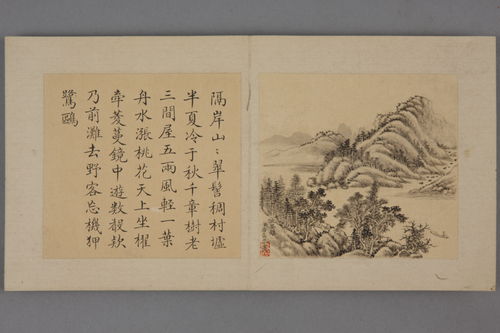 隔岸山〻翠髻稠村墟
半夏冷于秋千章樹老
三間屋五兩風輕一葉
舟水漲桃花天上坐櫂
牽菱蔓鏡中遊數聲欸
乃前灘去野客忘機狎
鷺鷗